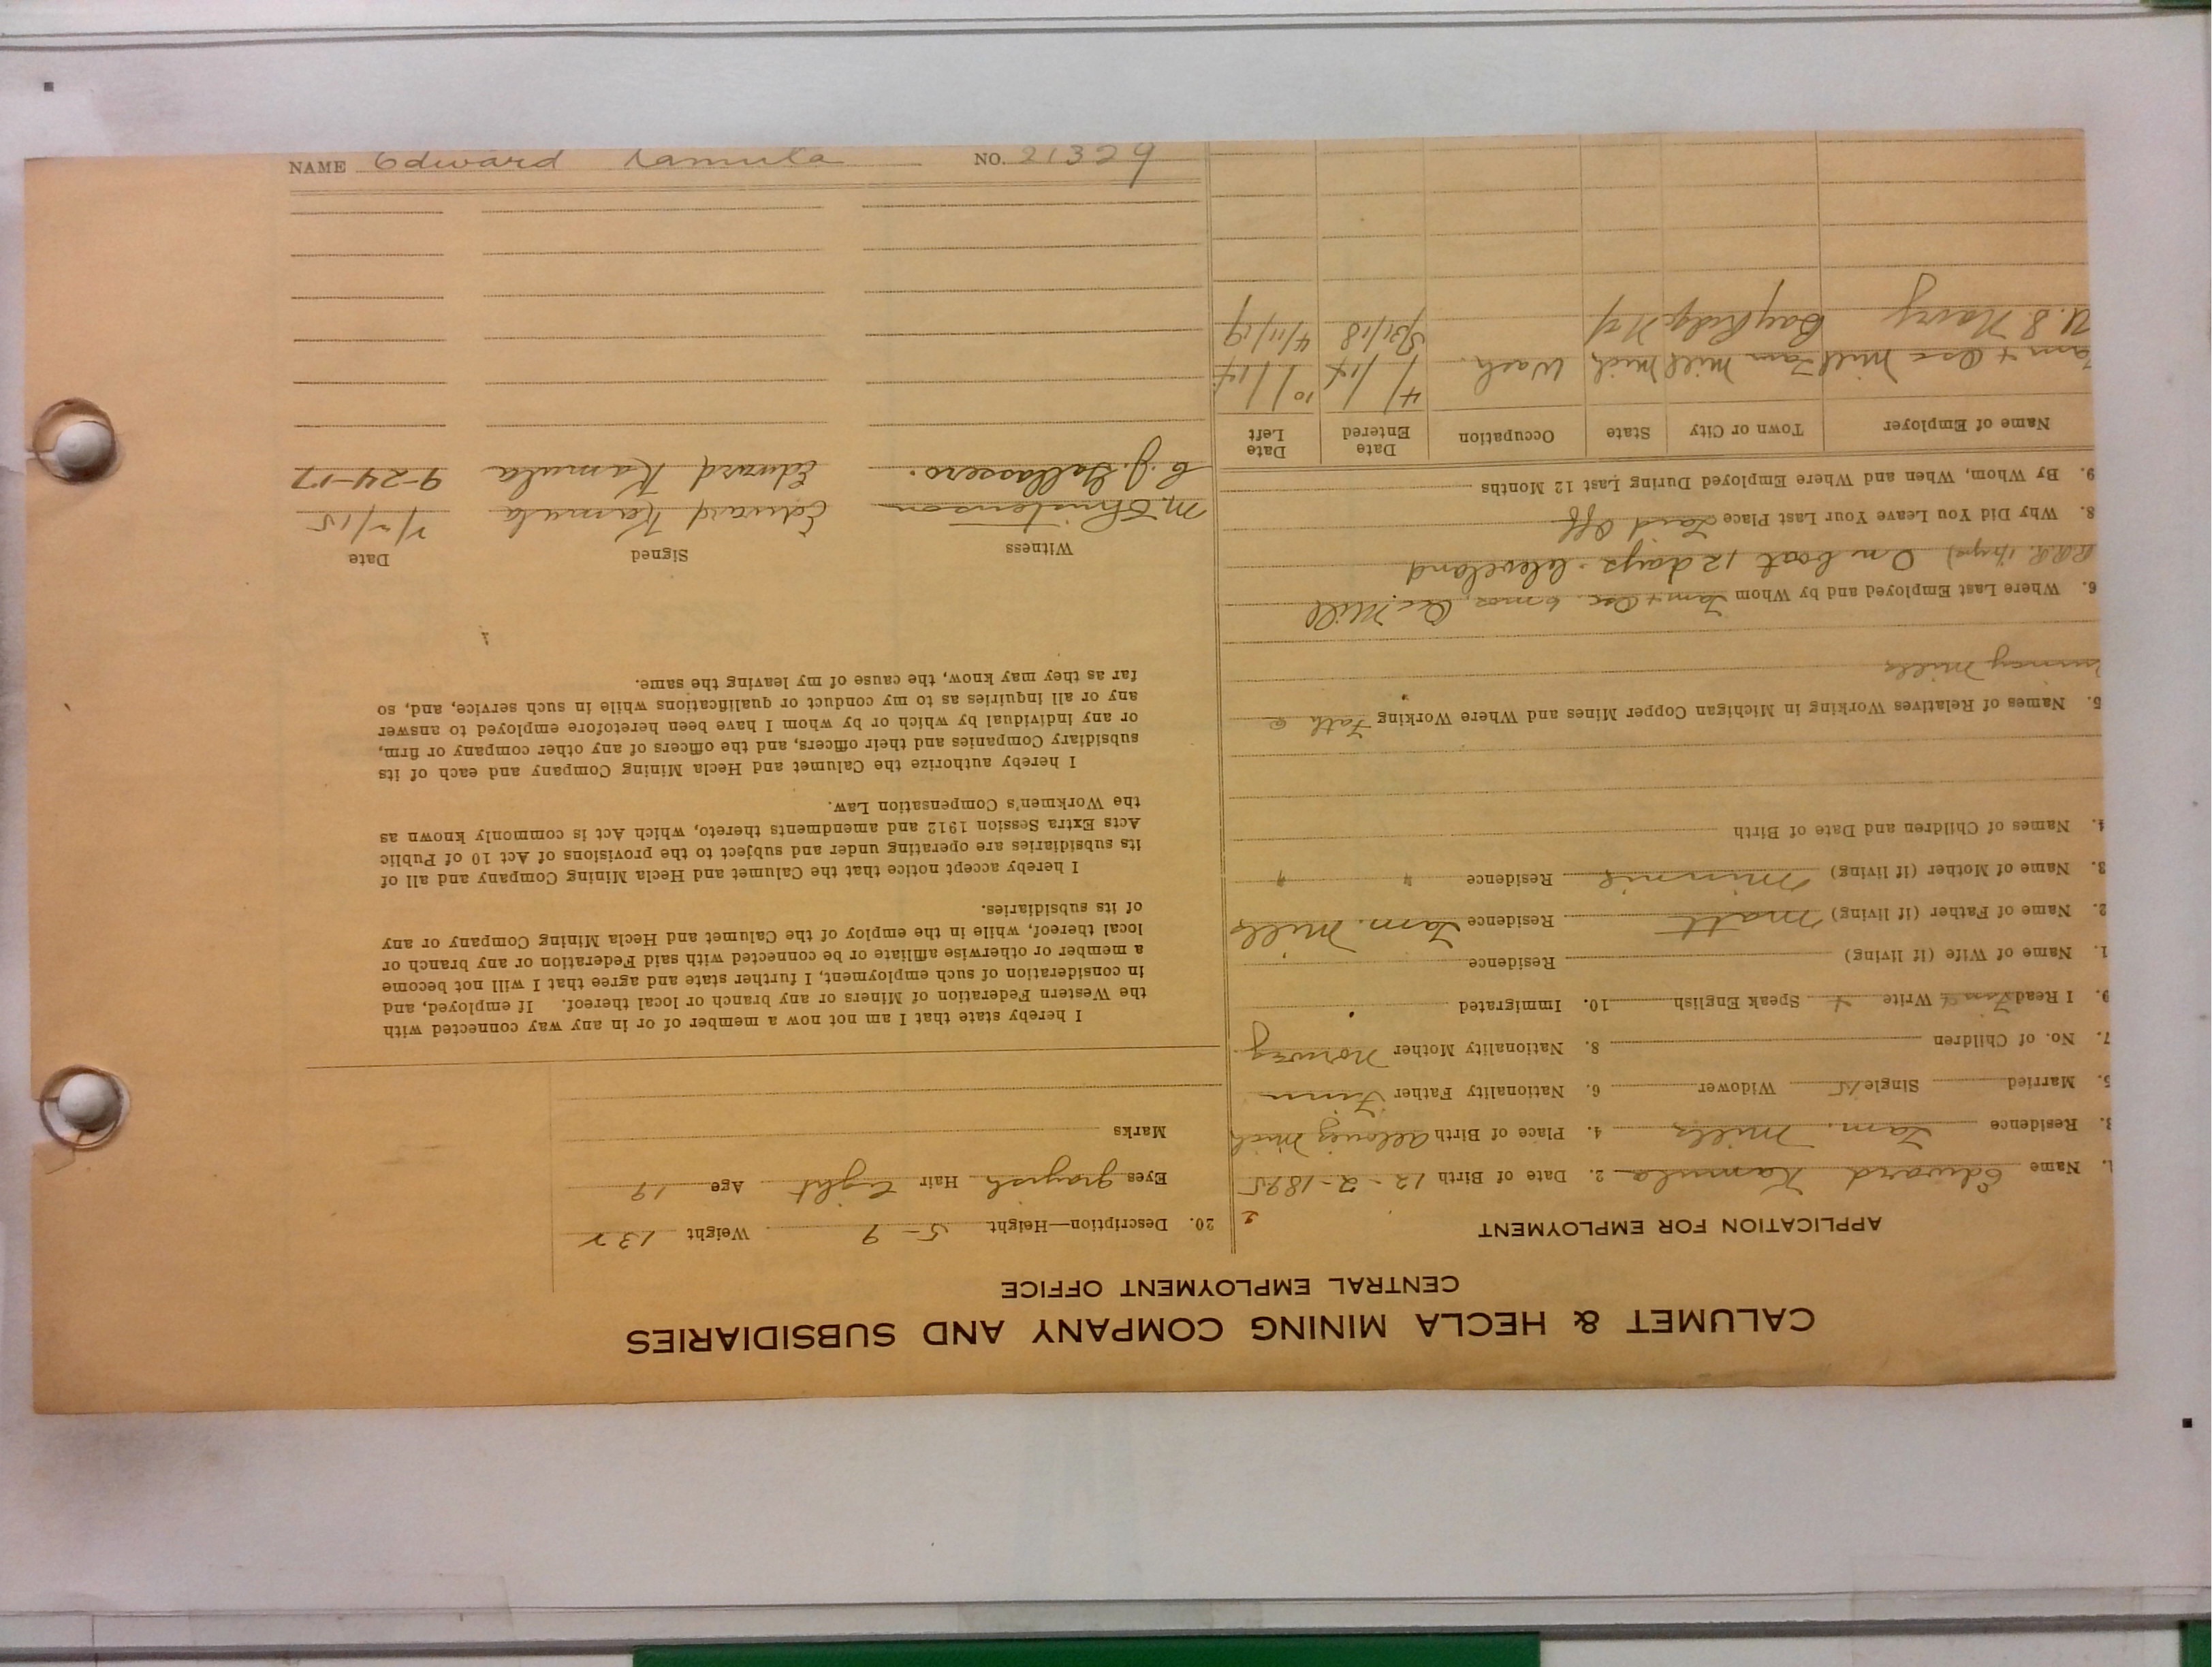 CALUMET & HECLA MINING COMPANY AND SUBSIDIARIES
CENTRAL EMPLOYMENT OFFICE
APPLICATION FOR EMPLOYMENT
1. Name Edward Kamula 2. Date of Birth 12-2-1895
3. Residence Tam. Mills 4. Place of Birth Allouez Mich
5. Married Single 15 Widower 6. Nationality Father Finn
7. No. of Children 8. Nationality Mother Norway
9. I Read Write Speak English 10. Immigrated
1. Name of Wife (if living) Residence
2. Name of Father (if living) Matt Residence Tam. Mills
3. Name of Mother (if living) Minnie Residence " "
4. Names of Children and Date of Birth
5. Names of Relatives Working in Michigan Copper Mines and Where Working Father
Quincy Mills
6. Where Last Employed and by Whom Tam + Osc. 6 mos. Osc. Mill
On boat 12 days. Cleveland
8. Why Did You Leave Your Last Place Laid Off
9. By Whom, When and Where Employed During Last 12 Months
Name of Employer Town or City State Occupation Date Entered Date Left
Tam + Osc Mill Tam Mill Mich Wash. 4/1/14 10/1/14
U.S. Navy Bay Ridge NY 5/31/18 4/11/19
20. Description—Height 5-9 Weight 132
Eyes grayish Hair light Age 19
Marks
I hereby state that I am not now a member of or in any way connected with
the Western Federation of Miners or any branch or local thereof. If employed, and
in consideration of such employment, I further state and agree that I will not become
a member or otherwise affiliate or be connected with said Federation or any branch or
local thereof, while in the employ of the Calumet and Hecla Mining Company or any
of its subsidiaries.
I hereby accept notice that the Calumet and Hecla Mining Company and all of
its subsidiaries are operating under and subject to the provisions of Act 10 of Public
Acts Extra Session 1912 and amendments thereto, which Act is commonly known as
the Workmen's Compensation Law.
I hereby authorize the Calumet and Hecla Mining Company and each of its
subsidiary Companies and their officers, and the officers of any other company or firm,
or any individual by which or by whom I have been heretofore employed to answer
any or all inquiries as to my conduct or qualifications while in such service, and, so
far as they may know, the cause of my leaving the same.
Witness Signed Date
M. Christenson Edward Kamula 1/2/15
C. J. Gallassero. Edward Kamula 9-24-17
NAME Edward Kamula NO. 21329